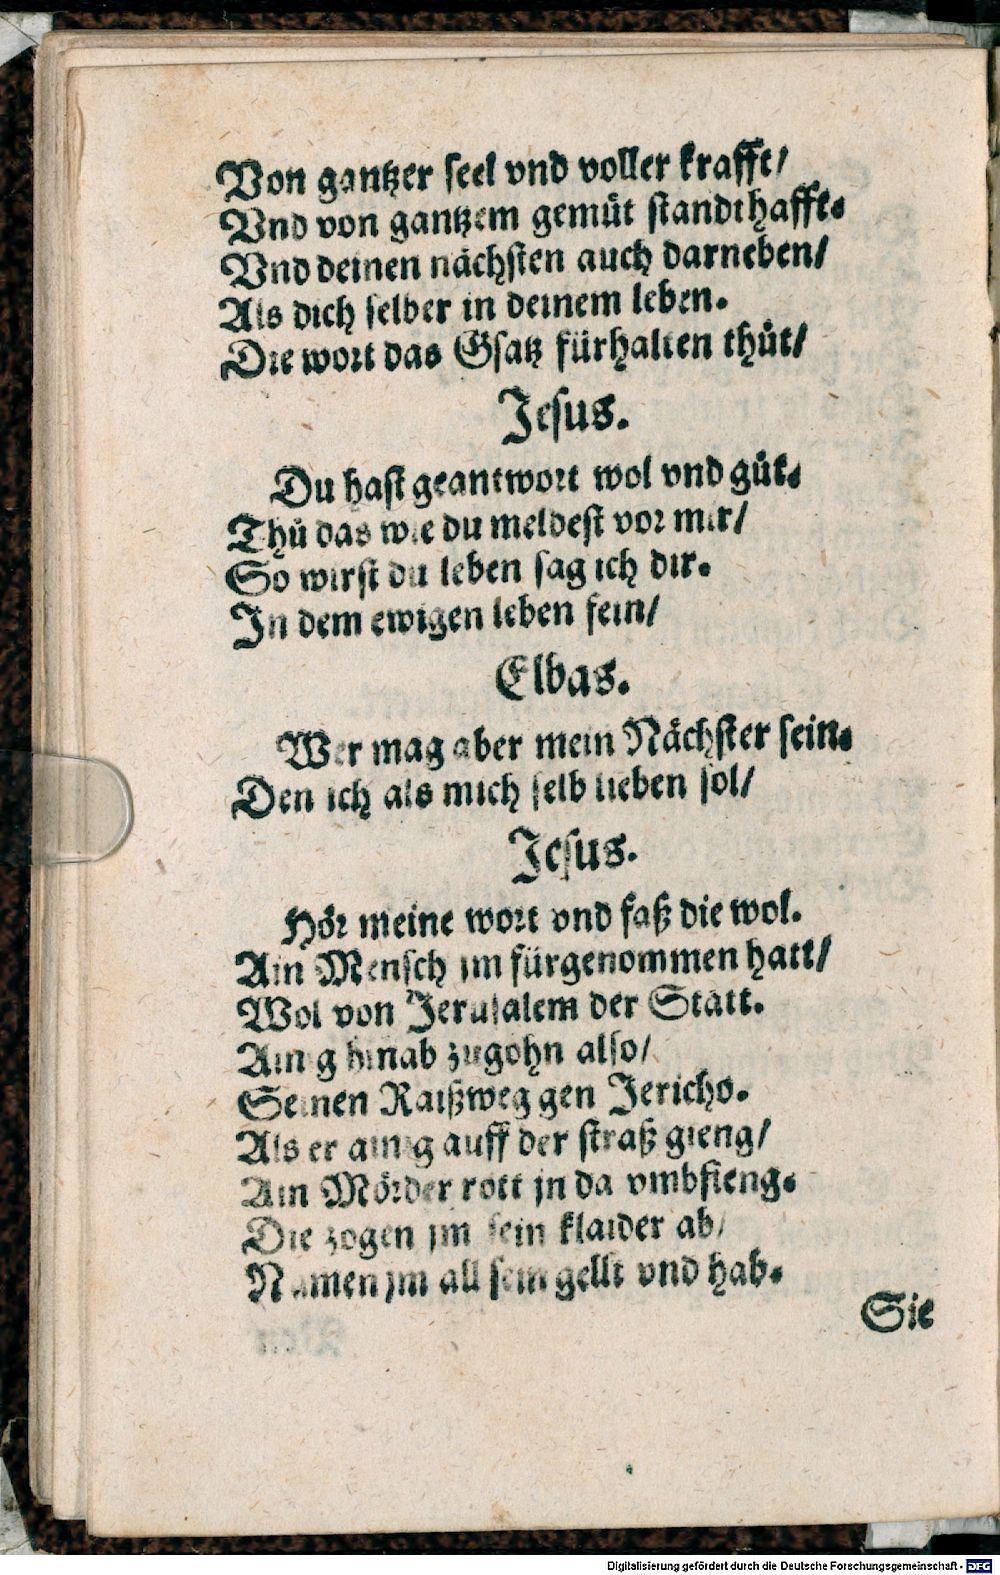 Von gantzer seel vnd voller krafft/
Vnd von gantzem gemůt standthafft.
Vnd deinen nächsten auch darneben/
Als dich selber in deinem leben.
Die wort das Gsatz fürhalten thůt/
Jesus.
Du hast geantwort wol vnd gůt.
Thů das wie du meldest vor mir/
So wirst du leben sag ich dir.
In dem ewigen leben fein/
Elbas.
Wer mag aber mein Nächster sein.
Den ich als mich selb lieben sol/
Jesus.
Hör meine wort vnd faß die wol.
Ain Mensch jm fürgenommen hatt/
Wol von Jerusalem der Statt.
Ainig hinab zugohn also/
Seinen Raißweg gen Jericho.
Als er ainig auff der straß gieng/
Ain Mörder rott jn da vmbfieng.
Die zogen jm sein klaider ab/
Namen jm all sein gellt vnd hab.
Sie
Digitalisierung gefördert durch die Deutsche Forschungsgemeinschaft - DFG